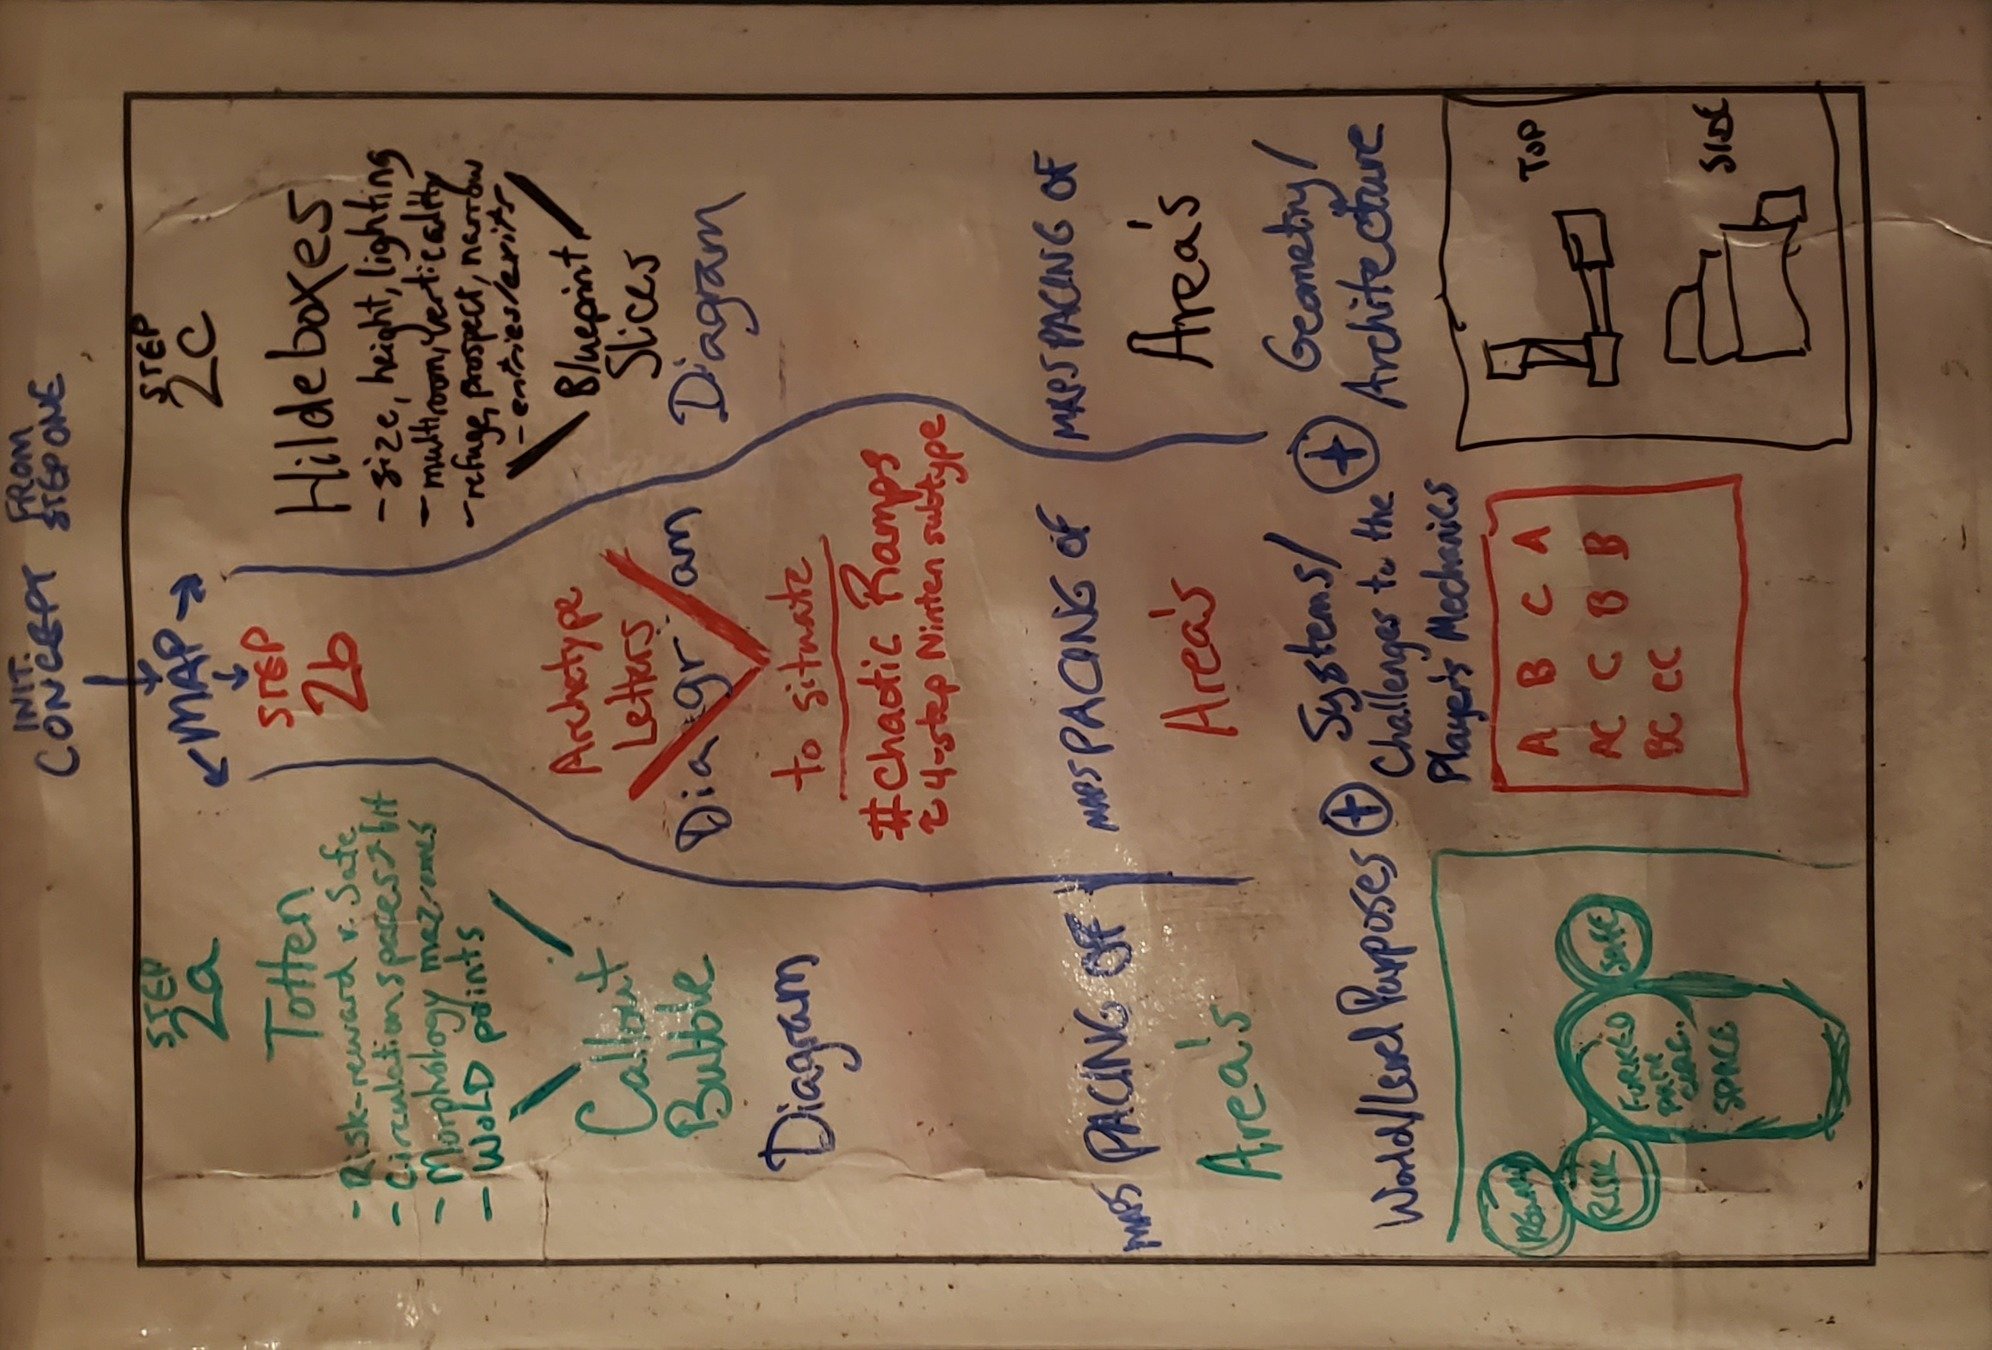 INIT. FROM
CONCEPT STEP ONE
MAP
STEP
2a
Totten
- Risk-reward v. Safe
- Circulation spaces > bit
- Morphology maz
- WoLD points
Callout
Bubble
Diagram
MAPS PACING OF
Area's
World/Level Purposes +
REWARD
RISK
FORKED
PATH
CIRC.
SPACE
SAFE
STEP
2b
Archetype
Letters
Diagram
to situate
#Chaotic Ramps
4-step Ninten subtype
MAPS PACING OF
Area's
Systems/
Challenges to the +
Player's Mechanics
A B C A
AC C B B
BC CC
STEP
2C
Hildeboxes
- size, height, lighting
- multiroom, verticality
- refuge, prospect, narrow
- entries/exits
Blueprint/
Slices
Diagram
MAPS PACING OF
Area's
Geometry/
Architecture
TOP
SIDE